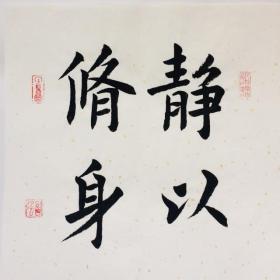 静以
脩身